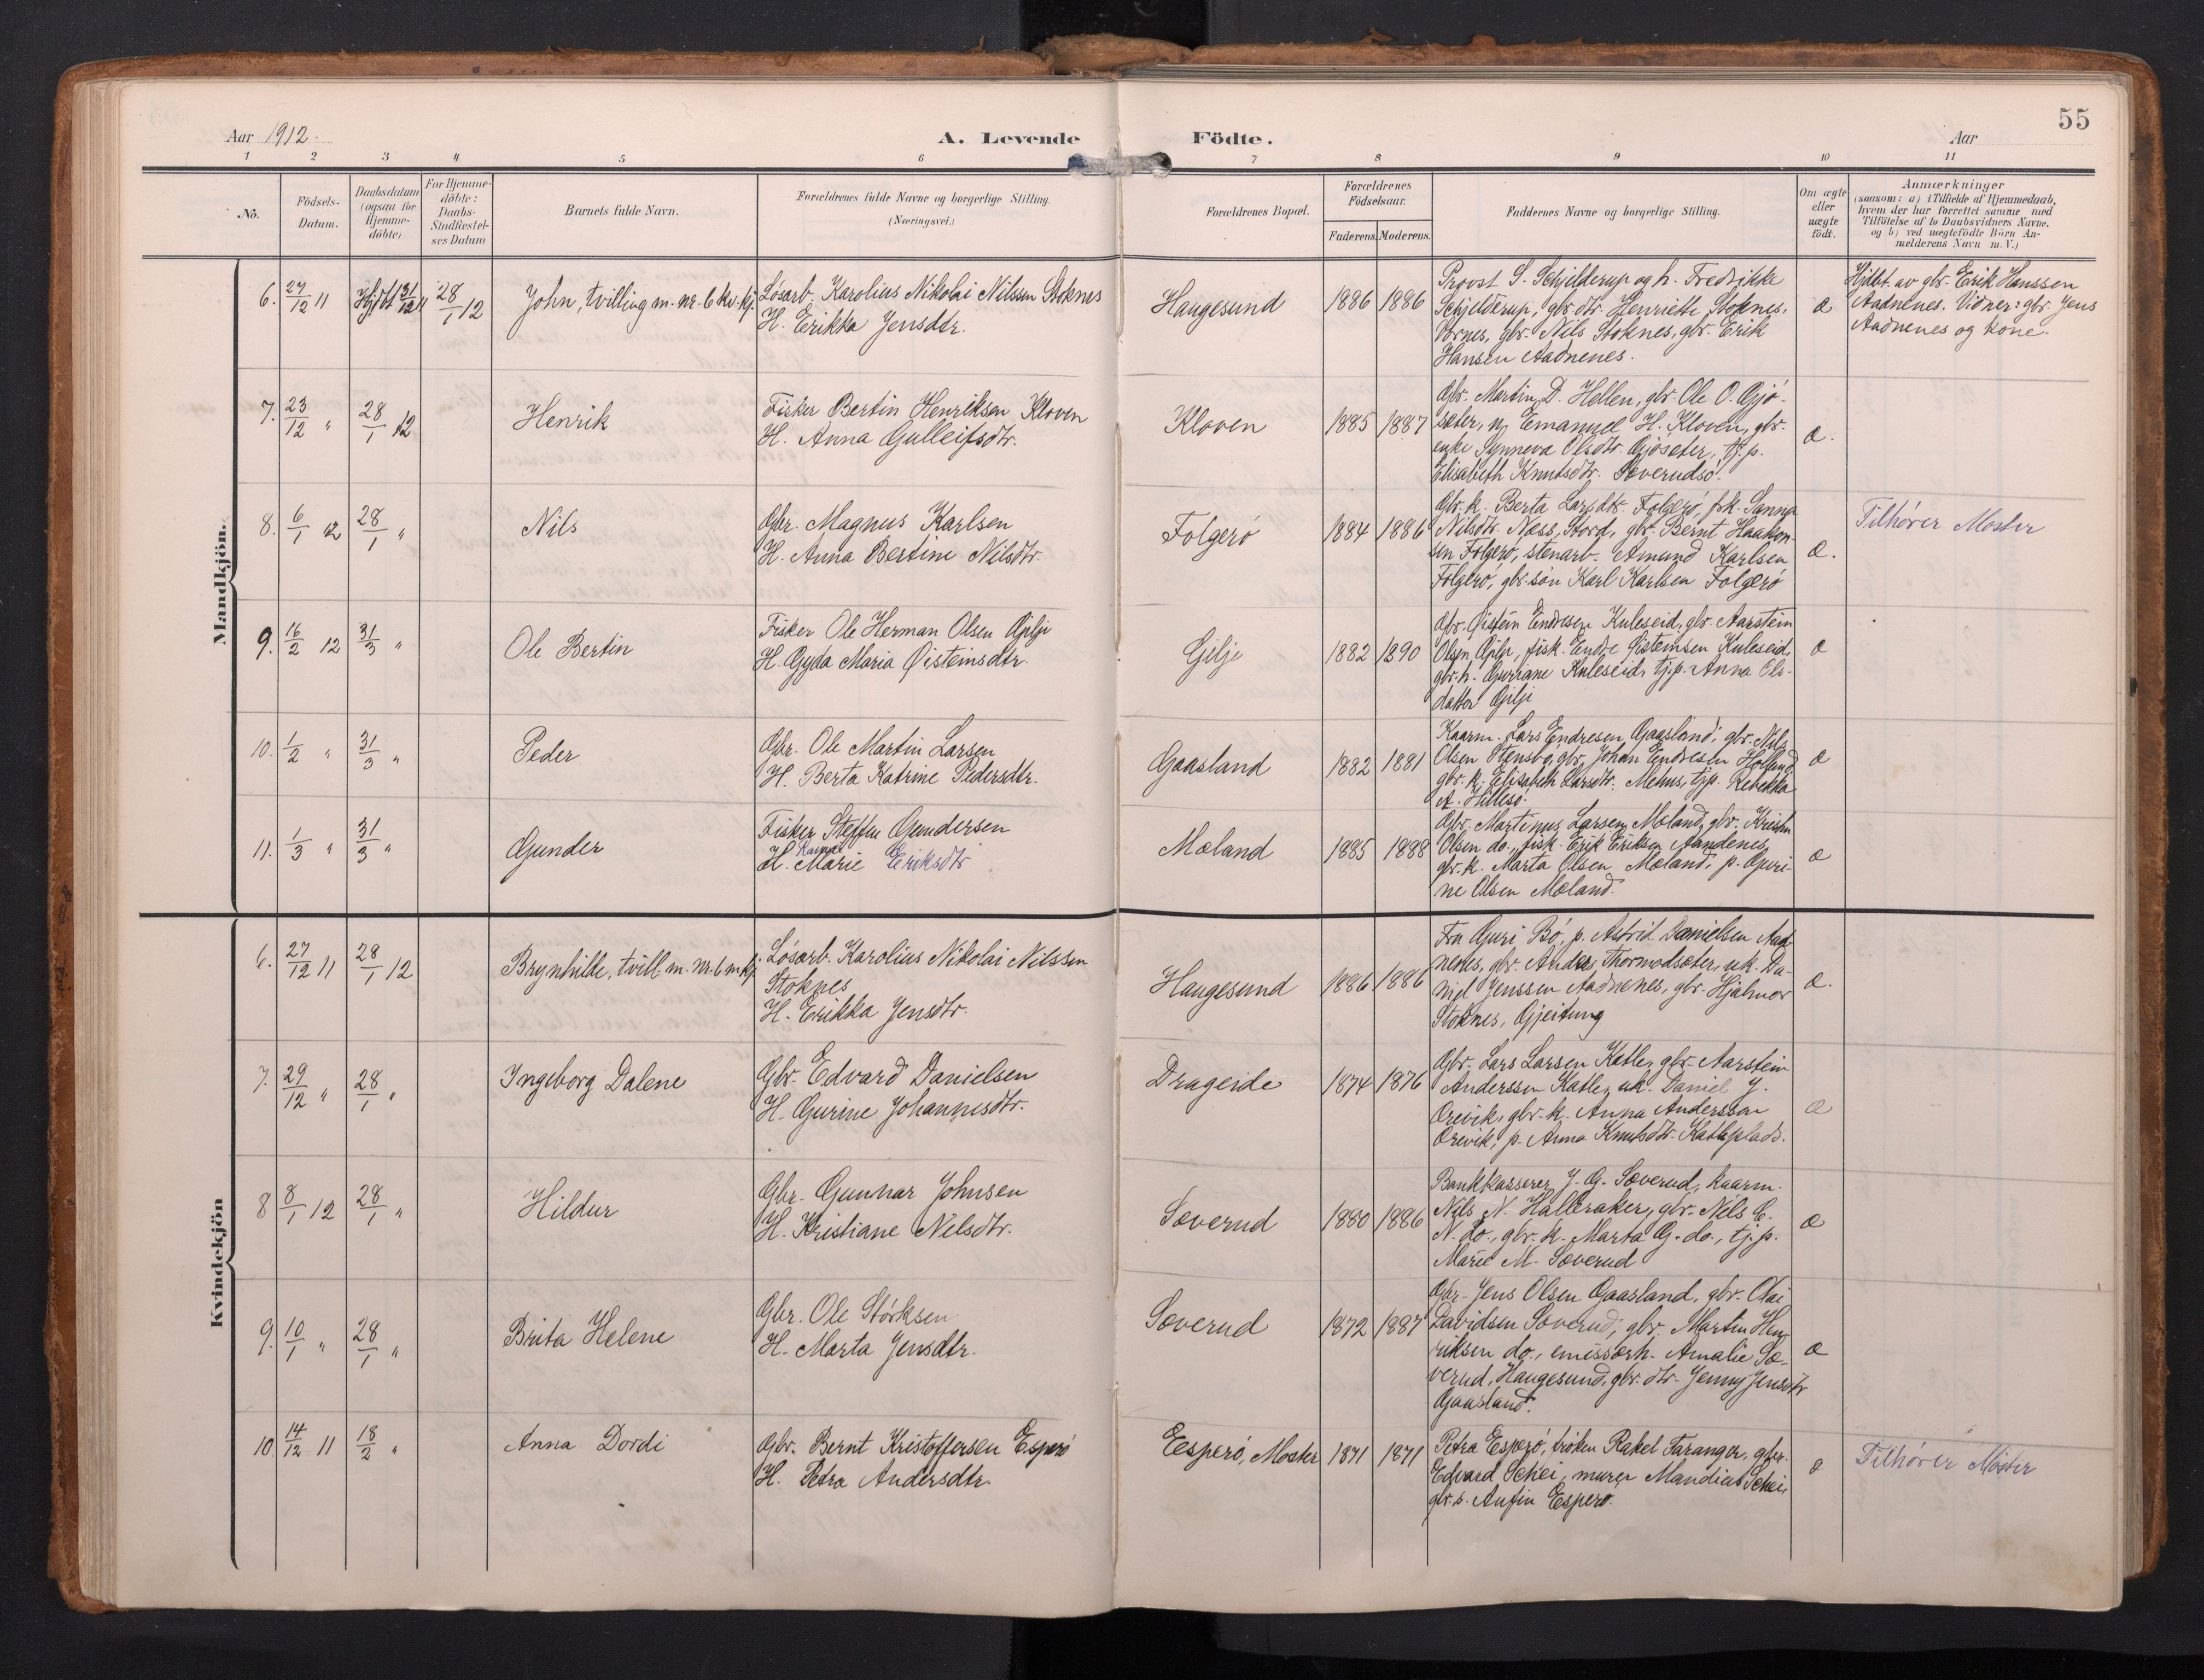 55
Aar 1912.
A. Levende
Födte.
Aar
1 2 3 4 5 6 7 8 9 10 11
No.
Födsels-
Datum.
Daabsdatum
(ogsaa for
Hjemme-
döbte)
For Hjemme-
döbte:
Daabs-
Stadfæstel-
ses Datum
Barnets fulde Navn.
Forældrenes fulde Navne og borgerlige Stilling.
(Næringsvei.)
Forældrenes Bopæl.
Forældrenes
Födselsaar.
Faderens.
Moderens.
Faddernes Navne og borgerlige Stilling.
Om ægte
eller
uægte
födt.
Anmærkninger
(saasom: a) i Tilfælde af Hjemmedaab,
hvem der har forrettet samme med
Tilföielse af to Daabsvidners Navne,
og b) ved uægtefödte Börn An-
melderens Navn m. V.)
Mandkjön.
6. 27/12 11 Hjdt 31/12 11 28/1 12
John, tvilling m. nr. 6 kv. kj.
Løsarb. Karolius Nikolai Nilssen Stoknes
H. Erikka Jensdtr.
Haugesund
1886 1886
Provst S. Schjelderup og h. Fredrikke
Schjelderup, gbr. dtr. Henriette Stoknes,
Vornes, gbr. Nils Stoknes, gbr. Erik
Hansen Aadnenes.
æ
Hjdbt. av gbr. Erik Hanssen
Aadnenes. Vidner: gbr. Jens
Aadnenes og kone.
7. 23/12 " 28/1 12
Henrik
Fisker Bertin Henriksen Kloven
H. Anna Gulleifsdtr.
Kloven
1885 1887
Gbr. Martin D. Hellen, gbr. Ole O. Gjø-
sæter, Emanuel H. Kloven, gbr.
enke Synneva Olsdtr. Gjøsæter, tj. p.
Elisabeth Knutsdtr. Søverudsø.
æ.
8. 6/1 12 28/1 "
Nils
Gbr. Magnus Karlsen
H. Anna Bertine Nilsdtr.
Folgerø
1884 1886
Gbr. k. Berta Larsdtr. Folgerø, Sanna
Nilsdtr. Næss, Stord, gbr. Bernt Haakon-
sen Folgerø, stenarb. Amund Karlsen
Folgerø, gbr. søn Karl Karlsen Folgerø
æ.
Tilhører Moster
9. 16/2 12 31/3 "
Ole Bertin
Fisker Ole Herman Olsen Gilje
H. Gyda Maria Øisteinsdtr.
Gilje
1882 1890
Gbr. Øistein Endresen Kuleseid, gbr. Aarstein
Olsen Gilje, fisk. Endre Øisteinsen Kuleseid,
gbr. h. Guriane Kuleseid, tj. p. Anna Ols-
datter Gilje
æ
10. 1/2 " 31/3 "
Peder
Gbr. Ole Martin Larsen
H. Berta Katrine Pedersdtr.
Gaasland
1882 1881
Kaarm. Lars Endresen Gaasland, gbr. Nils
Olsen Stensbø, gbr. Johan Endresen
gbr. k. Elisabeth Larsdtr. Mehus, tjp. Rebekka
A. Hillesø.
æ
11. 1/3 " 31/3 "
Gunder
Fisker Steffen Gundersen
H. Marie Eriksdtr
Mæland
1885 1888
Gbr. Martinus Larsen Mæland, gbr. Kristen
Olsen do., fisk. Erik Eriksen Aandenes,
gbr. k. Marta Olsen Mæland, p. Guri-
ne Olsen Mæland.
æ
Kvindekjön
6. 27/12 11 28/1 12
Brynhilde, tvill m. nr. 6 m.kj.
Løsarb. Karolius Nikolai Nilssen
Stoknes
H. Erikka Jensdtr.
Haugesund
1886 1886
Fru Guri Bø, p. Astrid Danielsen Aad-
nenes, gbr. Anders Thormodsæter, uk. Da-
niel Jenssen Aadnenes, gbr. Hjalmar
Stoknes, Gjeitung
æ.
7. 29/12 " 28/1 "
Ingeborg Dalene
Gbr. Edvard Danielsen
H. Gurine Johannesdtr.
Drageide
1874 1876
Gbr. Lars Larsen Katle, gbr. Aarstein
Anderssen Katle, uk. Daniel J.
Orevik, gbr. k. Anna Anderssen
Orevik, p. Anna Knutsdtr. Katleplads.
æ
8 8/1 12 28/1 "
Hildur
Gbr. Gunnar Johnsen
H. Kristiane Nilsdtr.
Søverud
1880 1886
Bankkasserer J. G. Søverud, kaarm.
Nils N. Halleraker, gbr. Nils C.
N. do., gbr. k. Marta G. do., tj. p.
Marie M. Søverud
æ
9. 10/1 " 28/1 "
Brita Helene
Gbr. Ole Størksen
H. Marta Jensdtr.
Søverud
1872 1887
Gbr. Jens Olsen Gaasland, gbr. Olai
Davidsen Søverud, gbr. Martin Hen-
riksen do., emissærh. Amalie Sø-
verud, Haugesund, gbr. dtr. Jenny Jensdtr
Gaasland.
æ
10 14/12 11 18/2 "
Anna Dordi
Gbr. Bernt Kristoffersen Esperø
H. Petra Andersdtr.
Eesperø, Moster
1871 1871
Petra Esperø, frøken Rakel Faranger, gbr.
Edvard Schei, murer Mandius Schei,
gbr. s. Anfin Esperø.
æ
Tilhører Moster